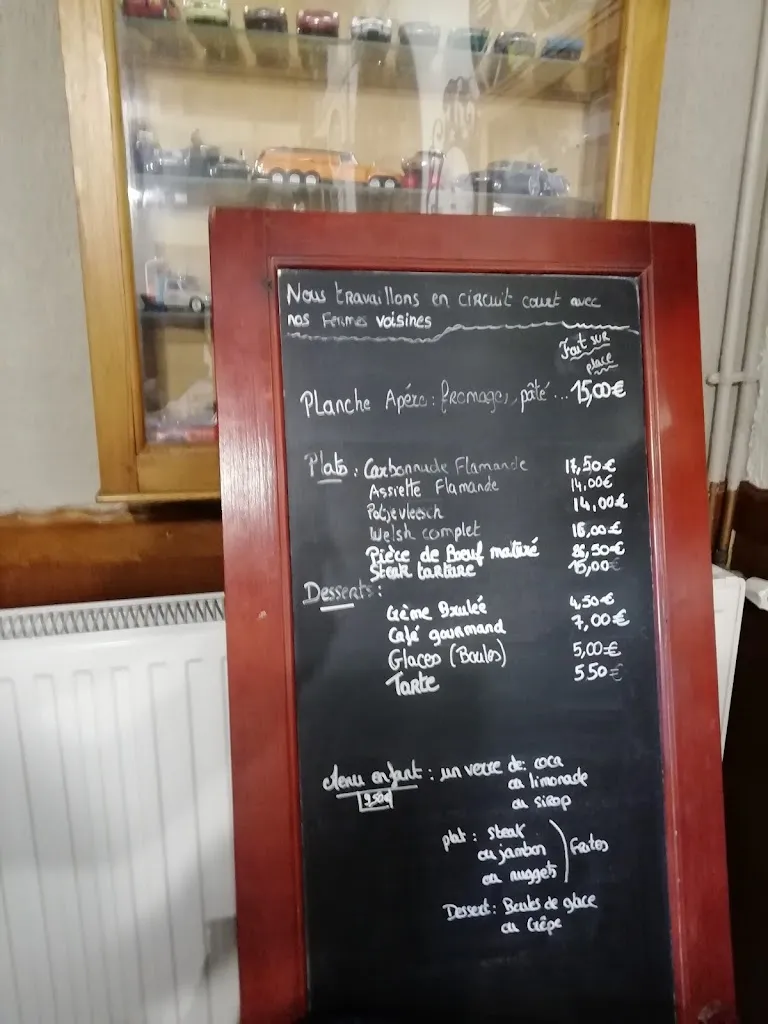 Nous travaillons en circuit court avec
nos Fermes voisines
Fait sur
place
Planche Apéro : fromages, pâté ... 15,00€
Plats : Carbonnade Flamande 17,50€
Assiette Flamande 14,00€
Potjevleesch 14,00€
Welsh complet 16,00€
Pièce de Boeuf maturé 26,50€
Steak tartare 15,00€
Desserts :
Crème Brulée 4,50€
Café gourmand 7,00€
Glaces (Boules) 5,00€
Tarte 5 50€
Menu enfant : un verre de : coca
9,50€ ou limonade
ou sirop
plat : steak
ou jambon Frites
ou nuggets
Dessert : Boules de glace
ou Crêpe